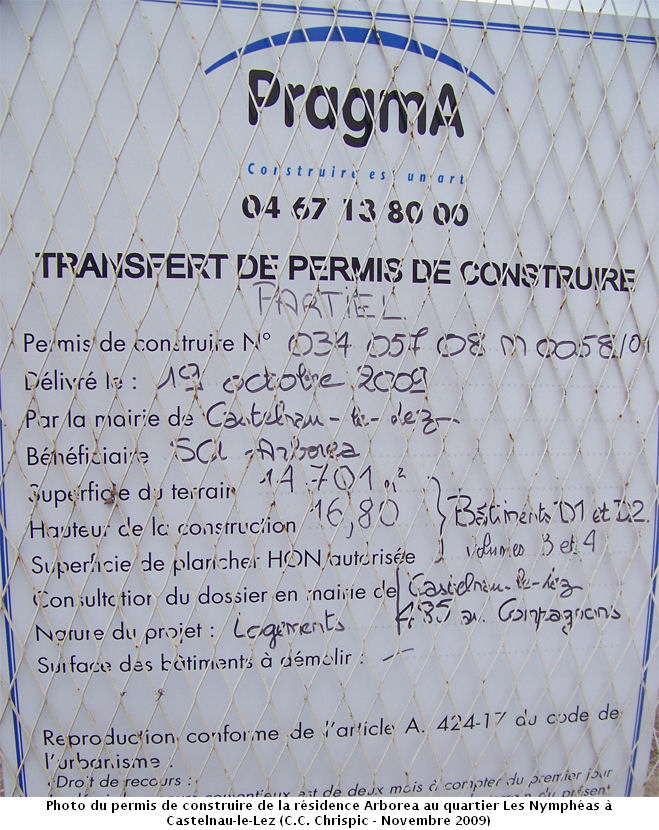 PragmA
Construire est un art
04 67 13 80 00
TRANSFERT DE PERMIS DE CONSTRUIRE
PARTIEL
Permis de construire N° 034 057 08 M 0058/01
Délivré le : 19 octobre 2009
Par la mairie de Castelnau-le-Lez
Bénéficiaire SCI Arborea
Superficie du terrain 14 701 m²
Hauteur de la construction 16,80 Bâtiments D1 et D2.
Superficie de plancher HON autorisée volumes 3 et 4
Consultation du dossier en mairie de Castelnau-le-Lez
Nature du projet : Logements
Surface des bâtiments à démolir : —
Reproduction conforme de l'article A. 424-17 du code de
l'urbanisme .
Droit de recours :
contentieux est de deux mois à compter du premier jour
du présent
Photo du permis de construire de la résidence Arborea au quartier Les Nymphéas à
Castelnau-le-Lez (C.C. Chrispic - Novembre 2009)